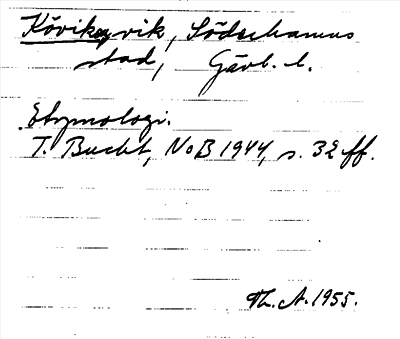 Kövikey vik, Södershamns
stad, Gävl. l.
Etymologi.
T. Bucht, NoB 1944, s. 32 ff.
Th. A. 1955.